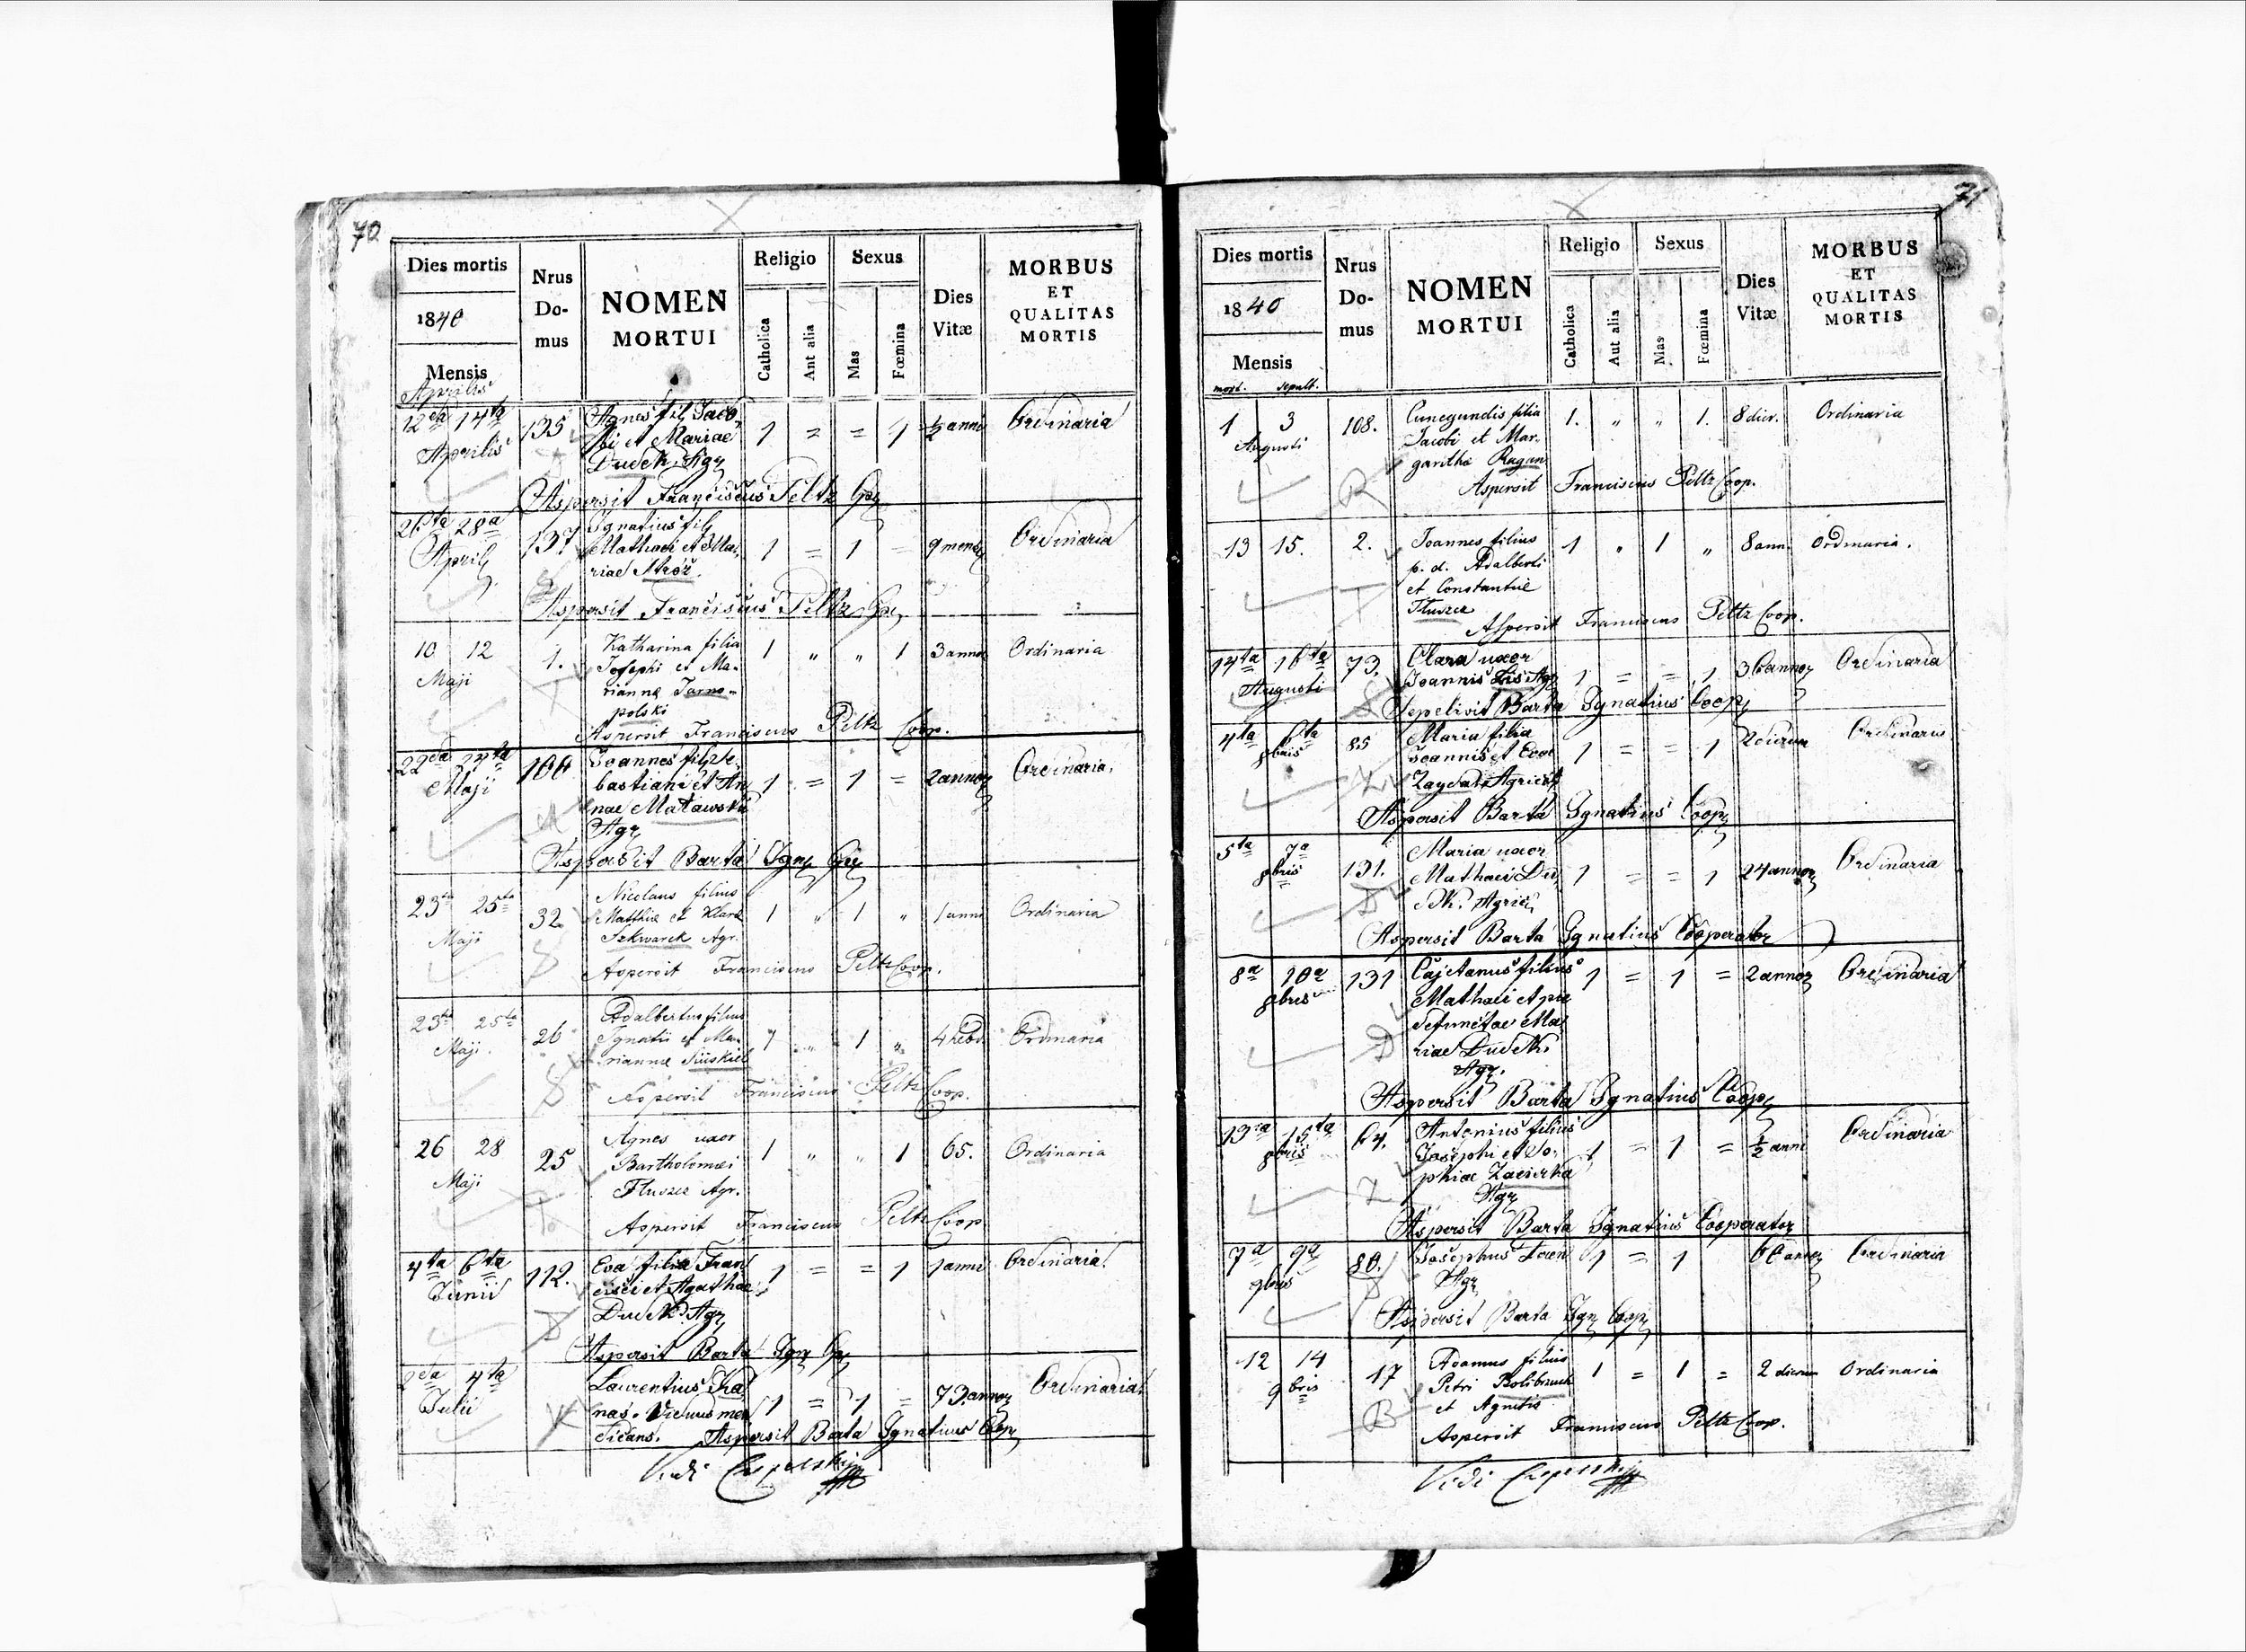 70
Dies mortis
1840
Mensis
Aprilis
Nrus
Do-
mus
NOMEN
MORTUI
Religio
Catholica
Aut alia
Sexus
Mas
Fœmina
Dies
Vitæ
MORBUS
ET
QUALITAS
MORTIS
12da 14ta 135 Agnes fil. Jaco- 1 = = 1 ½ anni Ordinaria
Aprilis bi et Mariae
Dudek. Agr
Aspersit Franciscus Peltz
26ta 28a 137 Ignatius fil. 1 = 1 = 9 mens Ordinaria
April Mathaei et Ma-
riae Stróż.
Aspersit Franciscus Peltz
10 12 1. Katharina filia 1 " " 1 3 annor Ordinaria
Maji Josephi et Ma-
rianna Tarno-
polski
Aspersit Franciscus Peltz Coop.
22da 100 Joannes fil. Se- 1 = 1 = 2 annor Ordinaria.
Maji bastiani et An
nae Matawski
Agr
Aspersit Barta Ign
23 25ta 32. Nicolaus filius 1 " 1 " 1 anni Ordinaria
Maji Matthiæ et Klara
Szkwarek Agr.
Aspersit Franciscus Peltz Coop.
23 25ta 26 Adalbertus filius 1 " 1 " 4 hebd. Ordinaria
Maji. Ignatii et Ma-
riannæ
Aspersit Franciscus Peltz Coop.
26 28 25 Agnes uxor 1 " " 1 65. Ordinaria
Maji Bartholomæi
Tłuszcz Agr.
Aspersit Franciscus Peltz Coop
4ta 6ta 112. Eva filia Fran 1 = = 1 1 anni Ordinaria.
Junii cisci et Agathae
Dudek. Agr
Aspersit Barta Ign
2da 4ta Laurentius Kal 1 = 1 = 73. annor Ordinaria
Julii nas. Viduus men
dicans. Aspersit Barta Ignatius Coop
Vidi
71
Dies mortis
1840
Mensis
mort. sepult.
Nrus
Do-
mus
NOMEN
MORTUI
Religio
Catholica
Aut alia
Sexus
Mas
Fœmina
Dies
Vitæ
MORBUS
ET
QUALITAS
MORTIS
1 3 108. Cunegundis filia 1. " " 1. 8 dier. Ordinaria
Augusti Jacobi et Mar-
garitha Ragan
Aspersit Franciscus Peltz Coop.
13 15. 2. Joannes filius 1 " 1 " 8 ann. Ordinaria.
p. d. Adalberti
et Constantiæ
Tłuszcz
Aspersit Franciscus Peltz Coop.
14ta 16ta 73. Clara uxor 1 = = 1 36 annor Ordinaria
Augusti Joannis Agr
Sepelivit Barta Ignatius Coop
4ta 6ta 85 Maria filia 1 = = 1 2 dierum Ordinaria
8bris Joannis et Evae
Agricol
Aspersit Barta Ignatius Coop
5ta 7a 131. Maria uxor 1 = = 1 24 annor Ordinaria
8bris Mathaei Du
dek. Agric.
Aspersit Barta Ignatius Cooperator
8a 10a 131 Cajetanus filius 1 = 1 = 2 annor Ordinaria
8bris Mathaei et pie
defunctae Ma
riae Dudek.
Agr.
Aspersit Barta Ignatius Coop
13 15ta 64. Antonius filius 1 = 1 = ½ anni Ordinaria
8bris Josephi et So-
phiae Zacierka
Agr
Aspersit Barta Ignatius Cooperator
7a 9a 80. Josephus 1 = 1 annor Ordinaria
9bris Agr
Aspersit Barta Ign Coop
12 14 17 Adamus filius 1 = 1 = 2 dierum Ordinaria
9bris Petri
et Agnetis
Aspersit Franciscus Peltz Coop.
Vidi